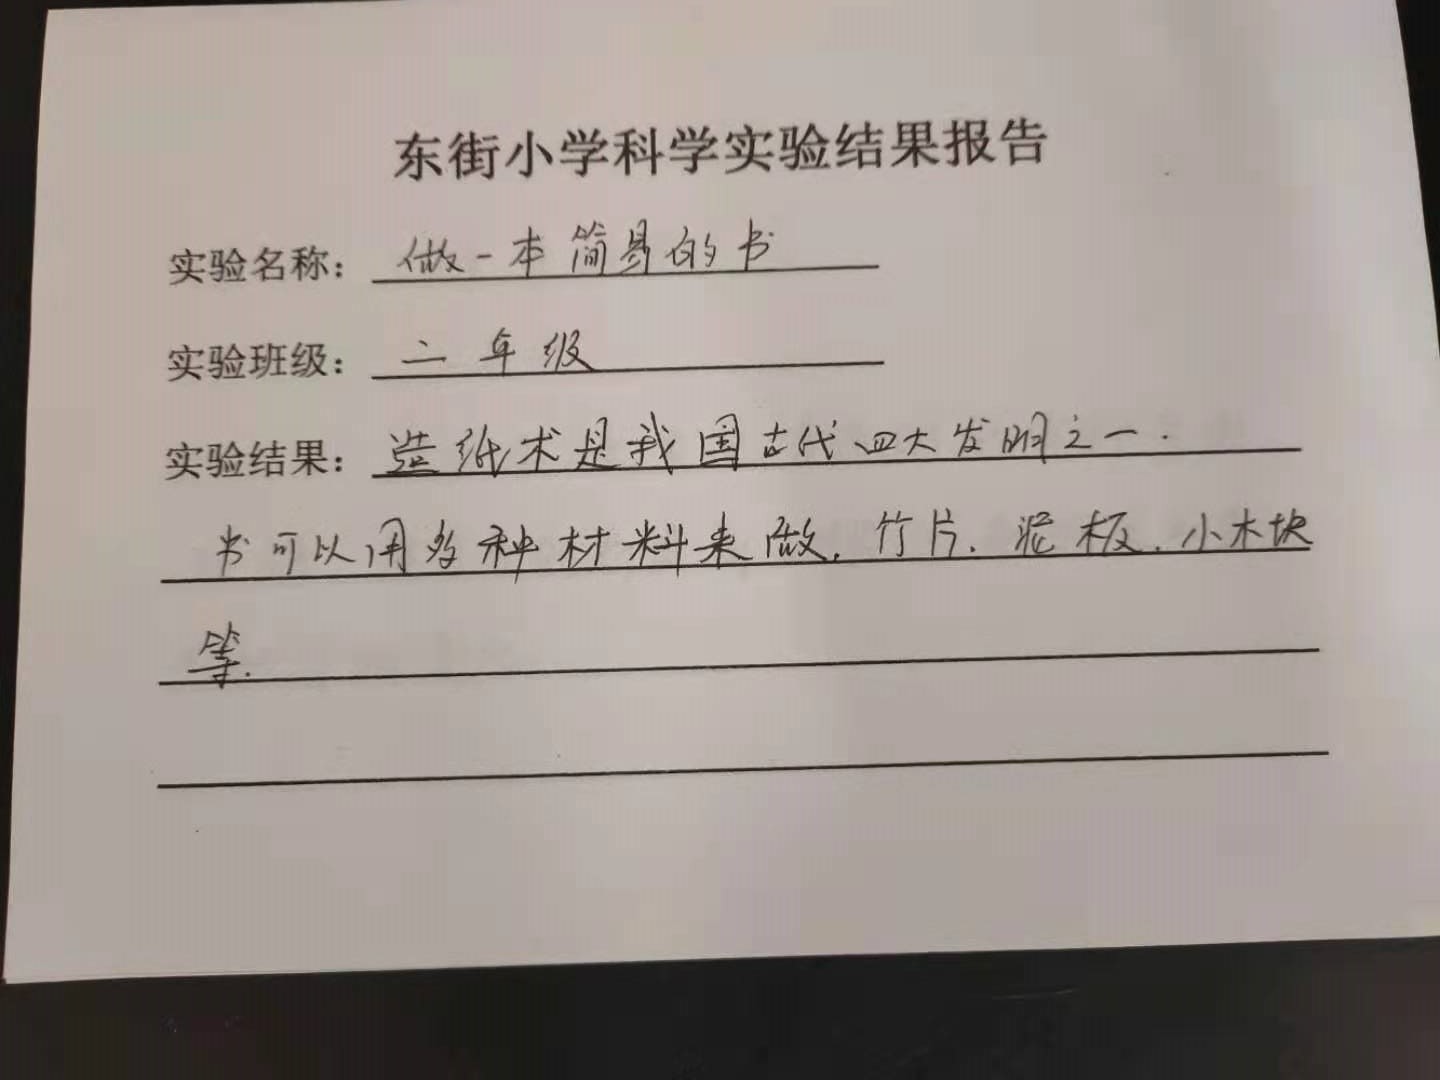 东街小学科学实验结果报告
实验名称：做一本简易的书
实验班级：二年级
实验结果：造纸术是我国古代四大发明之一.
书可以用多种材料来做.竹片.泥板.小木块
等.